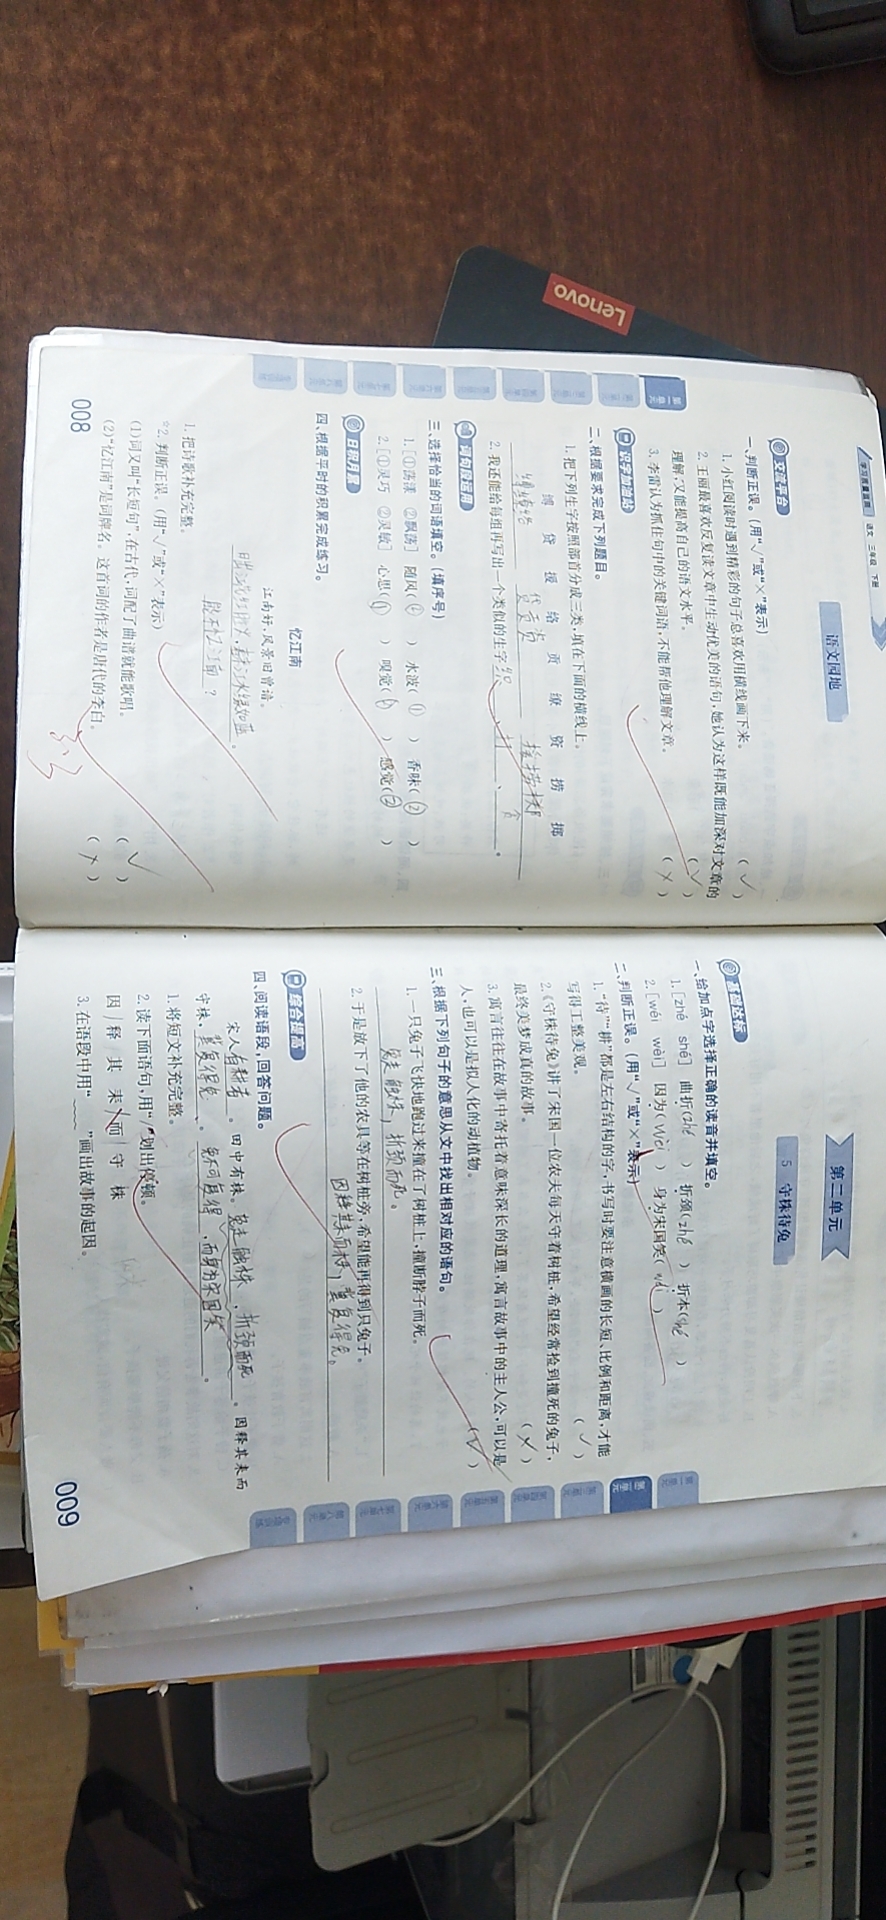 Lenovo
学习质量监测 语文 三年级 下册
语文园地
交流平台
一、判断正误。(用“√”或“×”表示)
1. 小红阅读时遇到精彩的句子总喜欢用横线画下来。 (√)
2. 王丽最喜欢反复读文章中生动优美的语句,她认为这样既能加深对文章的
理解,又能提高自己的语文水平。 (√)
3. 李雷认为抓住句中的关键词语,不能帮他理解文章。 (×)
识字加油站
二、根据要求完成下列题目。
1. 把下列生字按照部首分成三类,填在下面的横线上。
缚 贷 援 络 贡 缭 资 捞 掷
2. 我还能给每组再写出一个类似的生字:织、打、
词句段运用
三、选择恰当的词语填空。(填序号)
1. [①荡漾 ②飘荡] 随风(②) 水波(①) 香味(②)
2. [①灵巧 ②灵敏] 心思(①) 嗅觉( ) 感觉(②)
日积月累
四、根据平时的积累完成练习。
忆江南
江南好,风景旧曾谙。
日出江花红胜火,春来江水绿如蓝。
能不忆江南?
1. 把诗歌补充完整。
☆2. 判断正误。(用“√”或“×”表示)
(1)词又叫“长短句”,在古代,词配了曲谱就能歌唱。 (√)
(2)“忆江南”是词牌名。这首词的作者是唐代的李白。 (×)
008
第二单元
5 守株待兔
基础达标
一、给加点字选择正确的读音并填空。
1. [zhé shé] 曲折(zhé) 折颈(zhé) 折本(shé)
2. [wéi wèi] 因为(wèi) 身为宋国笑(wéi)
二、判断正误。(用“√”或“×”表示)
1. “待”“耕”都是左右结构的字,书写时要注意横画的长短、比例和距离,才能
写得工整美观。 (√)
2.《守株待兔》讲了宋国一位农夫每天守着树桩,希望经常捡到撞死的兔子,
最终美梦成真的故事。 (×)
3. 寓言往往在故事中寄托着意味深长的道理,寓言故事中的主人公,可以是
人,也可以是拟人化的动植物。 (√)
三、根据下列句子的意思从文中找出相对应的语句。
1. 一只兔子飞快地跑过来撞在了树桩上,撞断脖子而死。
兔走触株,折颈而死。
2. 于是放下了他的农具等在树桩旁,希望能再得到只兔子。
综合提高
四、阅读语段,回答问题。
宋人有耕者。田中有株。兔走触株,折颈而死。因释其耒而
守株,冀复得兔。兔不可复得,而身为宋国笑。
1. 将短文补充完整。
2. 读下面语句,用“/”划出停顿。
因/释 其 耒/而/守 株
3. 在语段中用“﹏﹏”画出故事的起因。
009